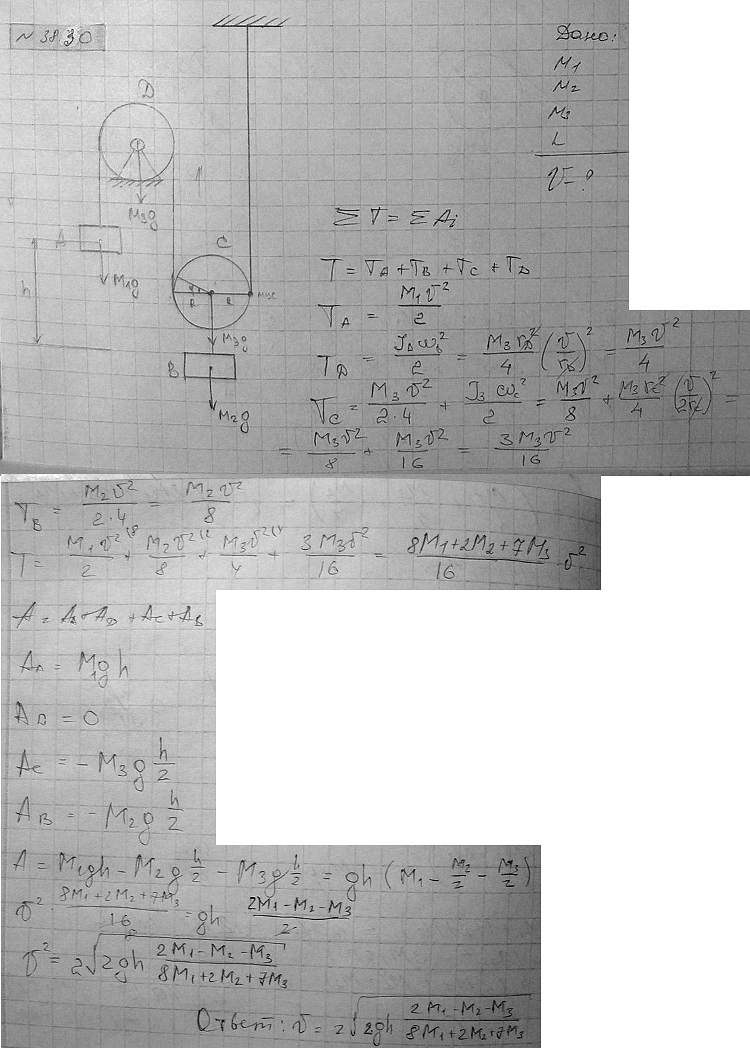 N 38.30
Дано:
M1
M2
M3
L
V-?
D
M3g
A
M1g
h
C
R
R
МЦС
M3g
B
M2g
ΣT = ΣAi
T = TA + TB + TC + TD
TA = M1V²/2
TD = JDωD²/2 = M3rD²/4 (V/rD)² = M3V²/4
TC = M3V²/2·4 + J3ωC²/2 = M3V²/8 + M3rC²/4 (V/2rC)² =
= M3V²/8 + M3V²/16 = 3M3V²/16
TB = M2V²/2·4 = M2V²/8
T = M1V²(8/2 + M2V²(2/8 + M3V²(4/4 + 3M3V²/16 = 8M1+2M2+7M3/16 V²
A = AA + AD + AC + AB
AA = M1gh
AD = 0
AC = -M3g h/2
AB = -M2g h/2
A = M1gh - M2g h/2 - M3g h/2 = gh (M1 - M2/2 - M3/2)
V² 8M1+2M2+7M3/16 = gh 2M1-M2-M3/2
V² = 2√2gh 2M1-M2-M3/8M1+2M2+7M3
Ответ: V = 2√2gh 2M1-M2-M3/8M1+2M2+7M3